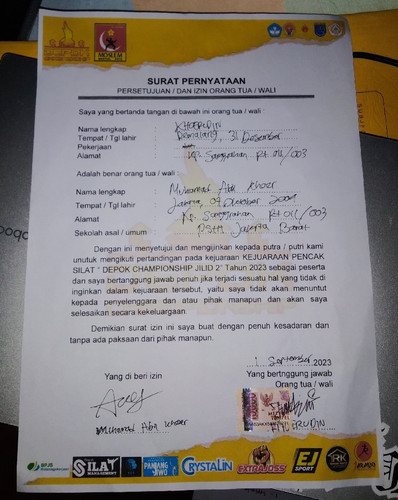 MOSLEM
SURAT PERNYATAAN
PERSETUJUAN / DAN IZIN ORANG TUA / WALI
Saya yang bertanda tangan di bawah ini orang tua / wali
Nama lengkap KHOERUDIN
Tempat / Tgl lahir Pemalang, 31 Desember
Pekerjaan
Alamat Kp. Sanggrahan Rt 011/003
Adalah benar orang tua / wali :
Nama lengkap Muhammad Abil Khoer
Tempat / Tgl lahir Jakarta, 04 Oktober
Alamat Kp Sanggrahan Rt 011/003
Sekolah asal / umum PSHT Jakarta Barat
Dengan ini menyetujui dan mengijinkan kepada putra / putri kami
untuk mengikuti pertandingan pada kejuaraan KEJUARAAN PENCAK
SILAT " DEPOK CHAMPIONSHIP JILID 2" Tahun 2023 sebagai peserta
dan saya bertanggung jawab penuh jika terjadi sesuatu hal yang tidak di
inginkan dalam kejuaraan tersebut, yaitu saya tidak akan menuntut
kepada penyelenggara dan atau pihak manapun dan akan saya
selesaikan secara kekeluargaan
Demikian surat izin ini saya buat dengan penuh kesadaran dan
tanpa ada paksaan dari pihak manapun.
1 September 2023
Yang di beri izin Yang bertanggung jawab
Orang tua / wali
KHOERUDIN
BPJS SILAT MANAGEMENT PANJANG JIWO CRYSTALIN PETRAJOSS EJ SPORT RK